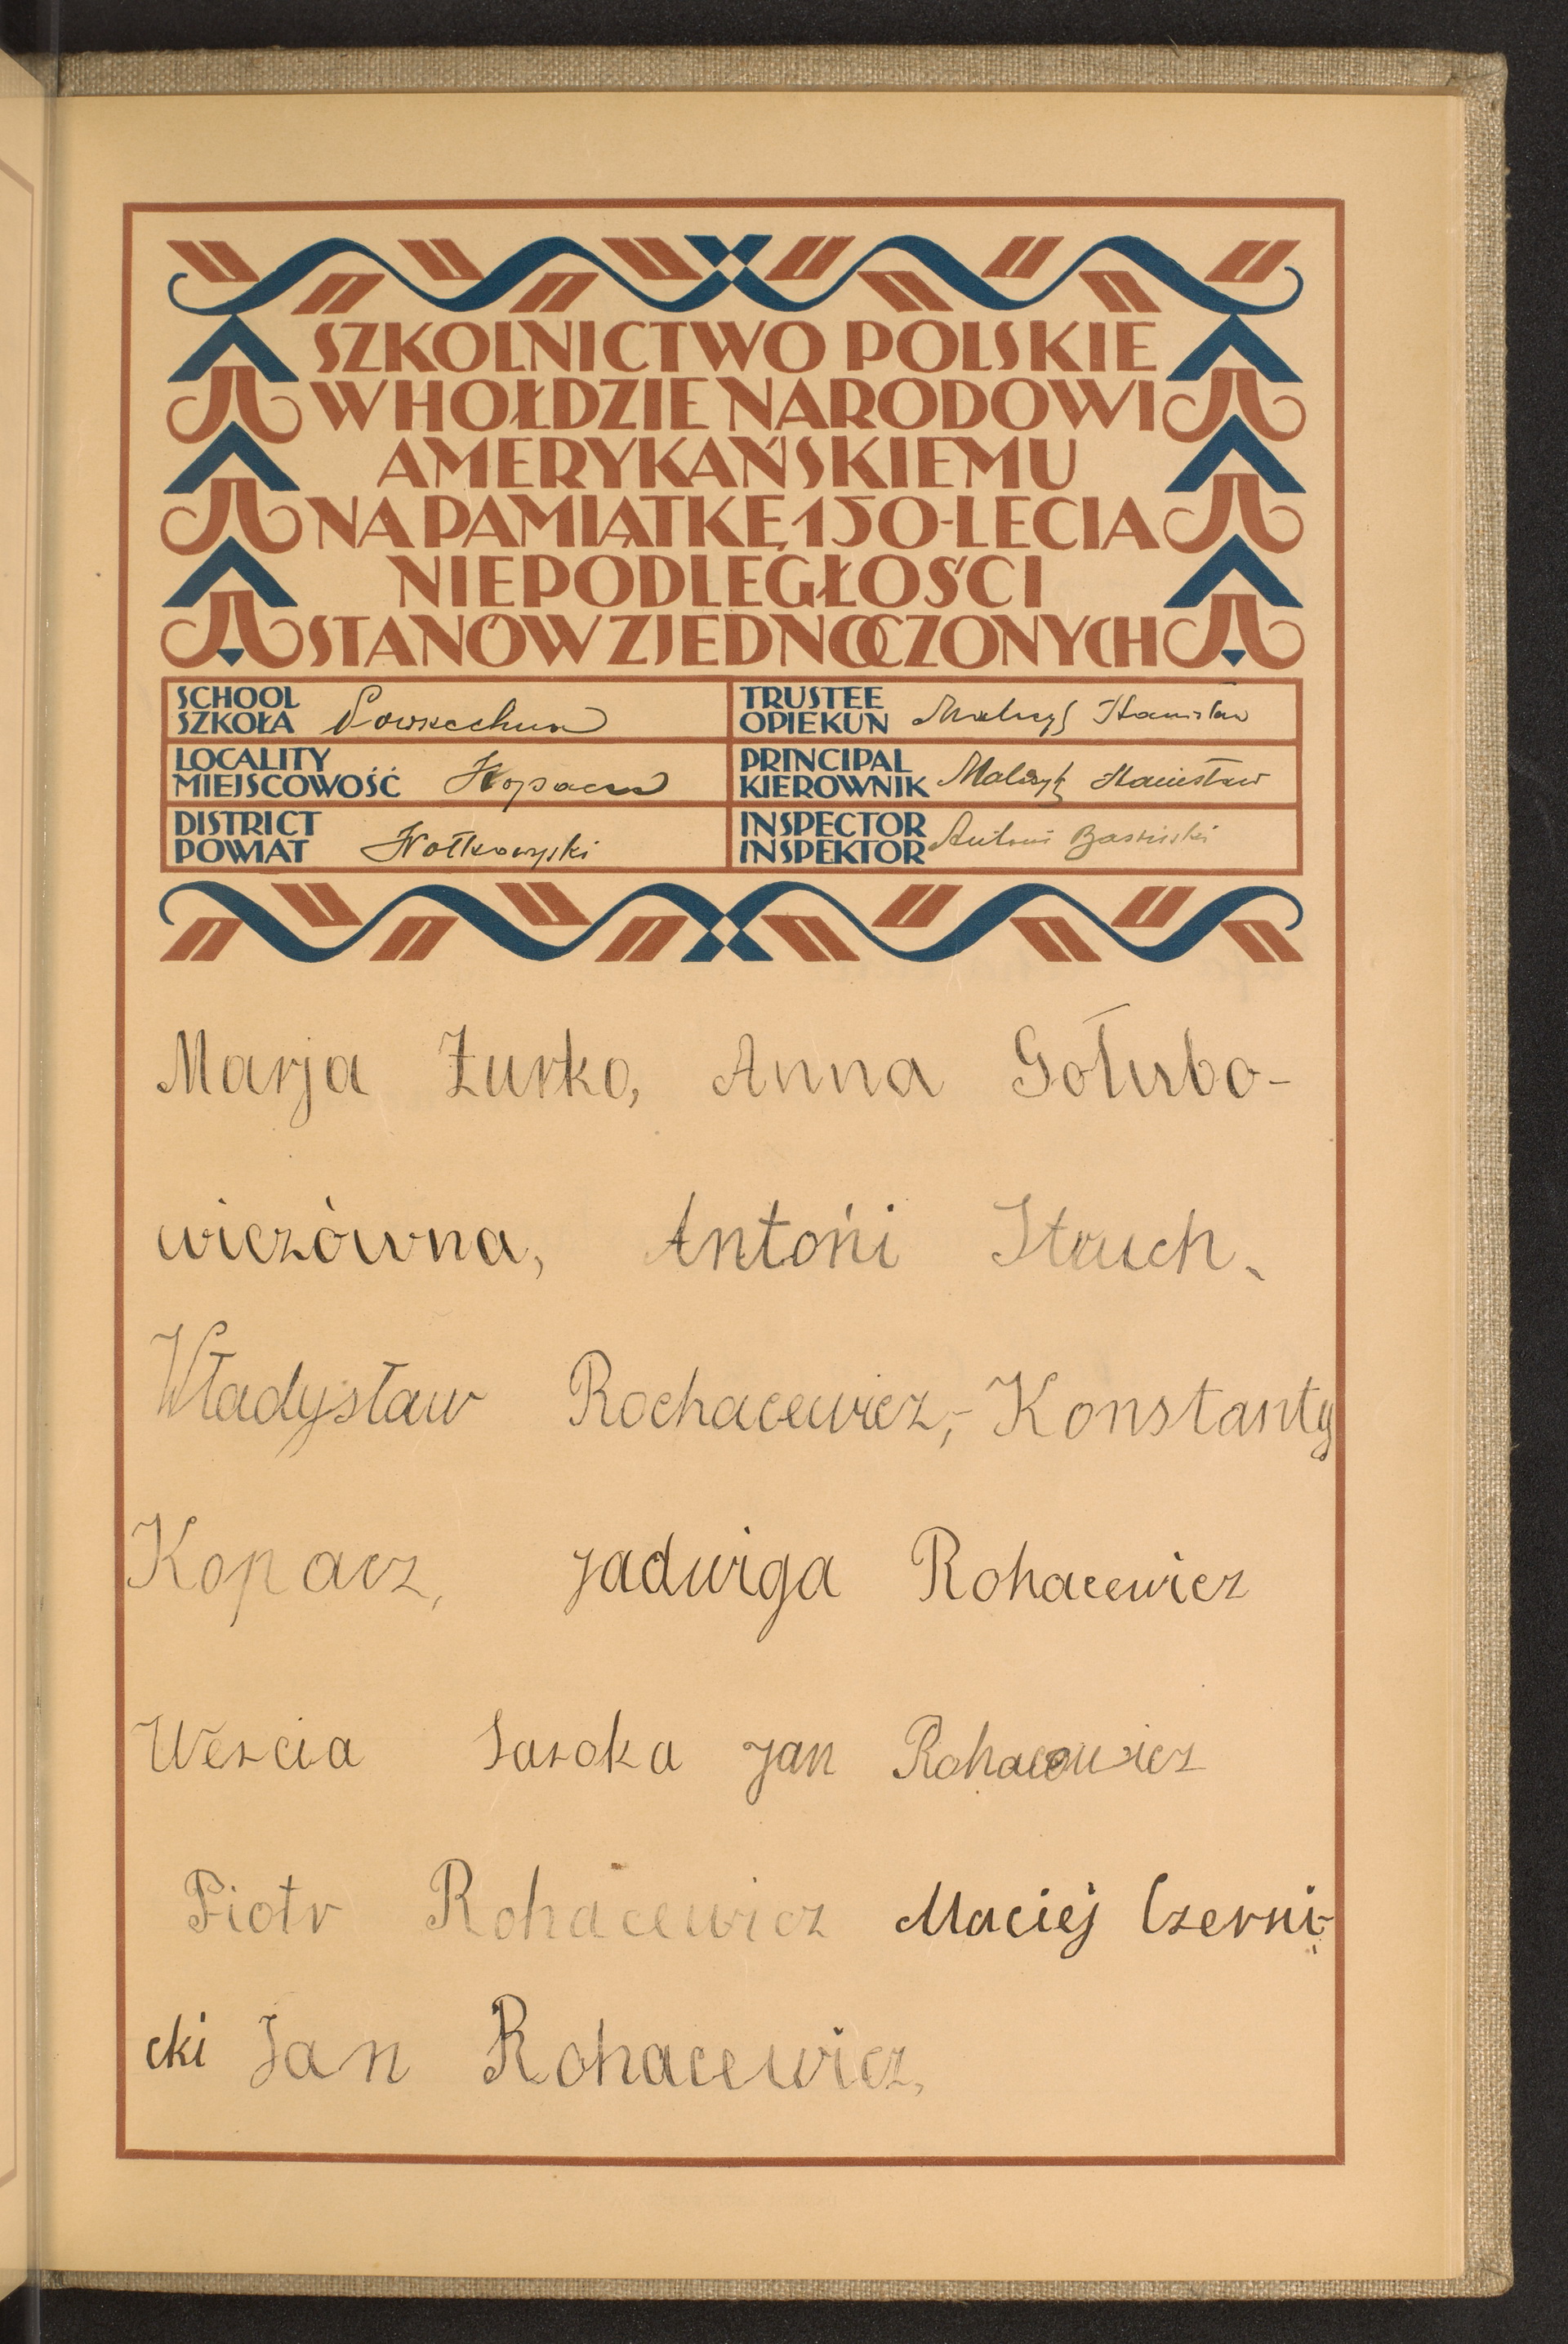 SZKOLNICTWO POLSKIE
W HOŁDZIE NARODOWI
AMERYKAŃSKIEMU
NA PAMIĄTKĘ 150-LECIA
NIEPODLEGŁOŚCI
STANÓW ZJEDNOCZONYCH
SCHOOL
SZKOŁA Powszechna
TRUSTEE
OPIEKUN Stanisław
LOCALITY
MIEJSCOWOŚĆ Kopacze
PRINCIPAL
KIEROWNIK Stanisław
DISTRICT
POWIAT Wołkowyski
INSPECTOR
INSPEKTOR Antoni
Marja Żurko, Anna Gołubo-
wiczówna, Antońi Struch,
Władysław Rochacewicz,- Konstanty
Kopacz, Jadwiga Rohacewicz
Wescia Sasoka Jan Rohacewicz
Piotr Rohacewicz Maciej Czerni-
cki Jan Rohacewicz,